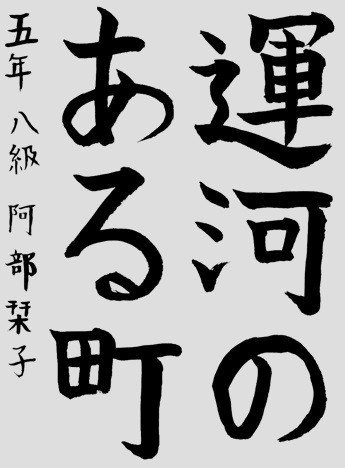 運河の
ある町
五年 八級 阿部栞子